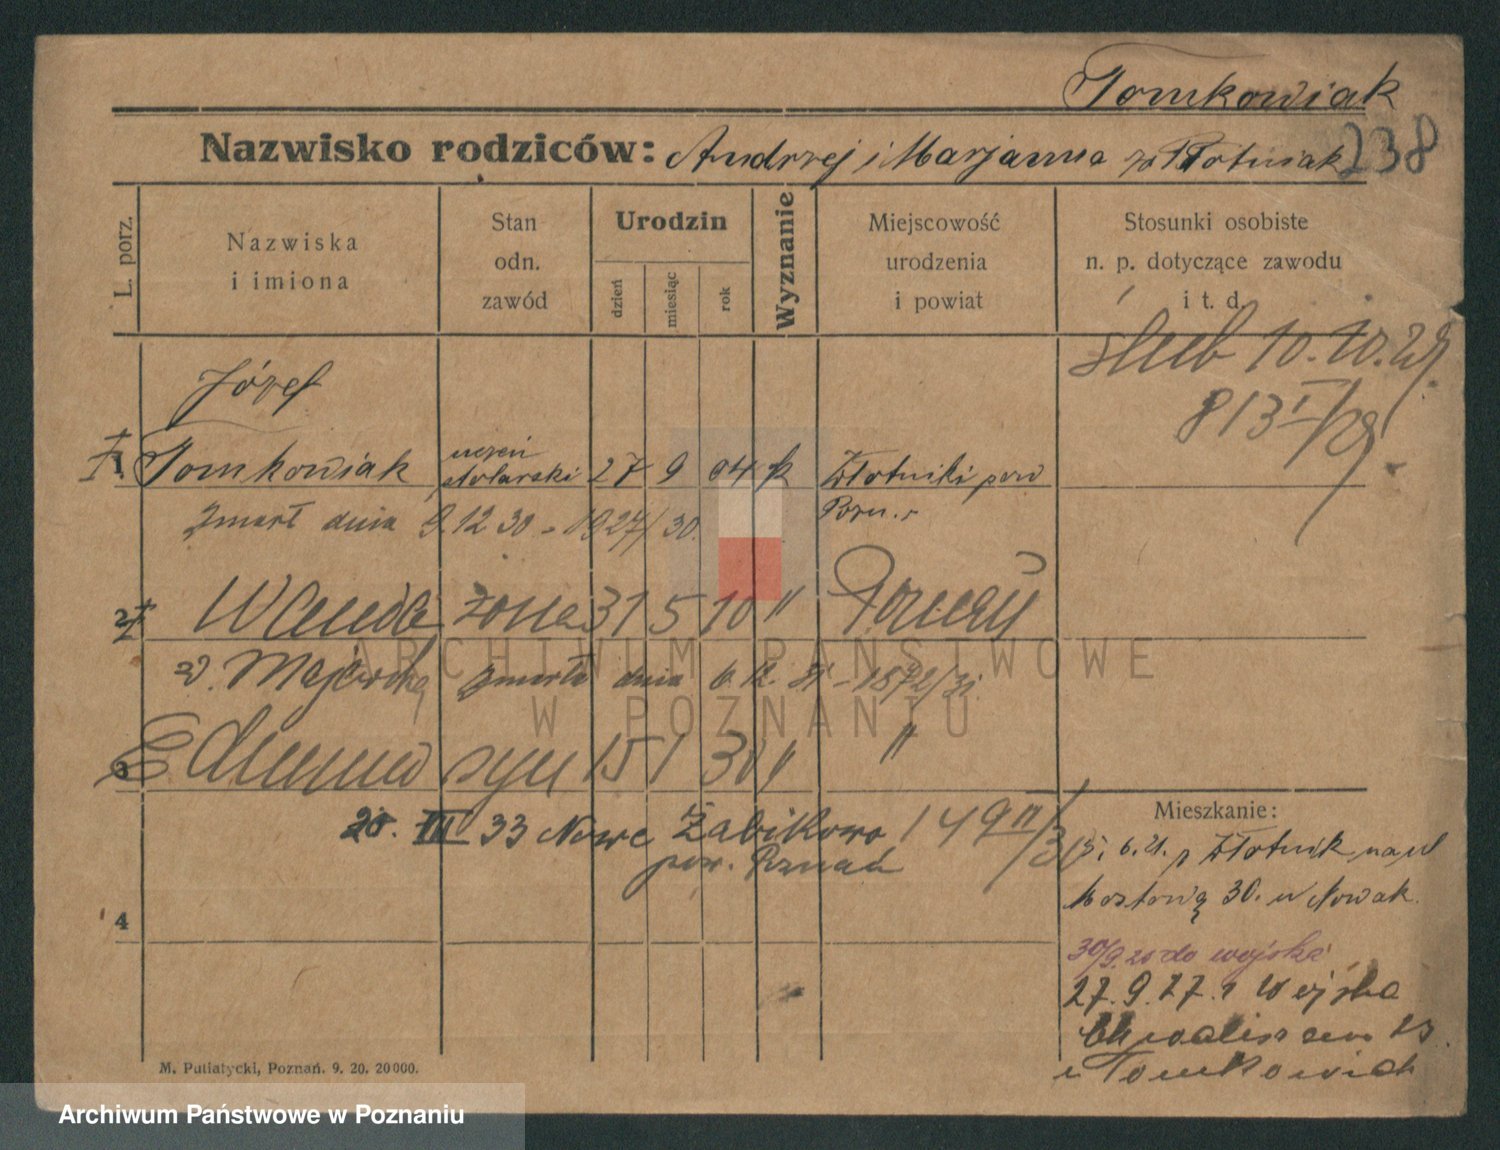 Tomkowiak
Nazwisko rodziców: Andrzej i Marjanna 238
L. porz.
Nazwiska
i imiona
Stan
odn.
zawód
Urodzin
dzień
miesiąc
rok
Wyznanie
Miejscowość
urodzenia
i powiat
Stosunki osobiste
n. p. dotyczące zawodu
i t. d.
ślub 10.10.29.
813 I/29.
Józef
1 Tomkowiak uczeń stolarski 27 9 04 k Złotniki pow
Pozn.
Zmarł dnia 9.12 30 - 1927/30.
2 Wanda żona 31 5 10 " Poznań
z d. Majewska zmarła dnia 6.12.31 - 1572/31.
3 Edmund syn 15 1 30 " "
20. III 33 Nowe Żabikowo 149 II/30
pow. Poznań
4
Mieszkanie:
6.21. z Złotnik na ul
Mostową 30. u Nowak
30/9.25 do wojska
27.9.27. z Wojska
u Tomkowiak
M. Putiatycki, Poznań. 9. 20. 20000.
ARCHIWUM PAŃSTWOWE
W POZNANIU
Archiwum Państwowe w Poznaniu